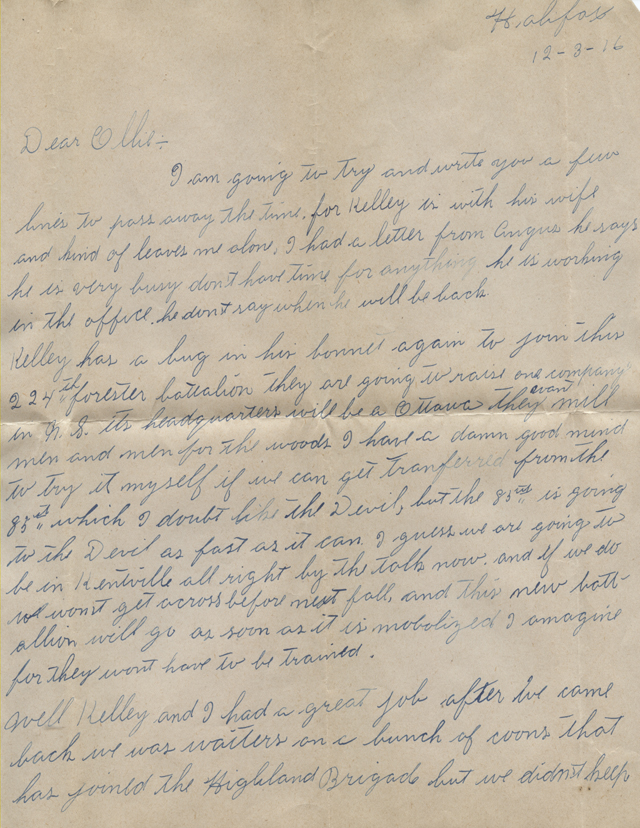 Halifax
12-3-16
Dear Ollie÷
I am going to try and write you a few
lines to pass away the time. for Kelley is with his wife
and kind of leaves me alone, I had a letter from Angus he says
he is very busy don't have time for anything he is working
in the office. he dont say when he will be back
Kelley has a bug in his bonnet again to join this
224th forester battalion they are going to raise one company
in N.S. its headquarters will be a Ottawa they want mill
men and men for the woods I have a damn good mind
to try it myself if we can get tranferred from the
85th which I doubt like the Devil, but the 85th is going
to the Devil as fast as it can. I guess we are going to
be in Kentville all right by the talk now. and if we do
we wont get across before next fall, and this new batt-
allion will go as soon as it is mobolized I amagine
for they wont have to be trained.
Well Kelley and I had a great job after we came
back we was waiters on a bunch of coons that
has joined the Highland Brigade but we didn't keep